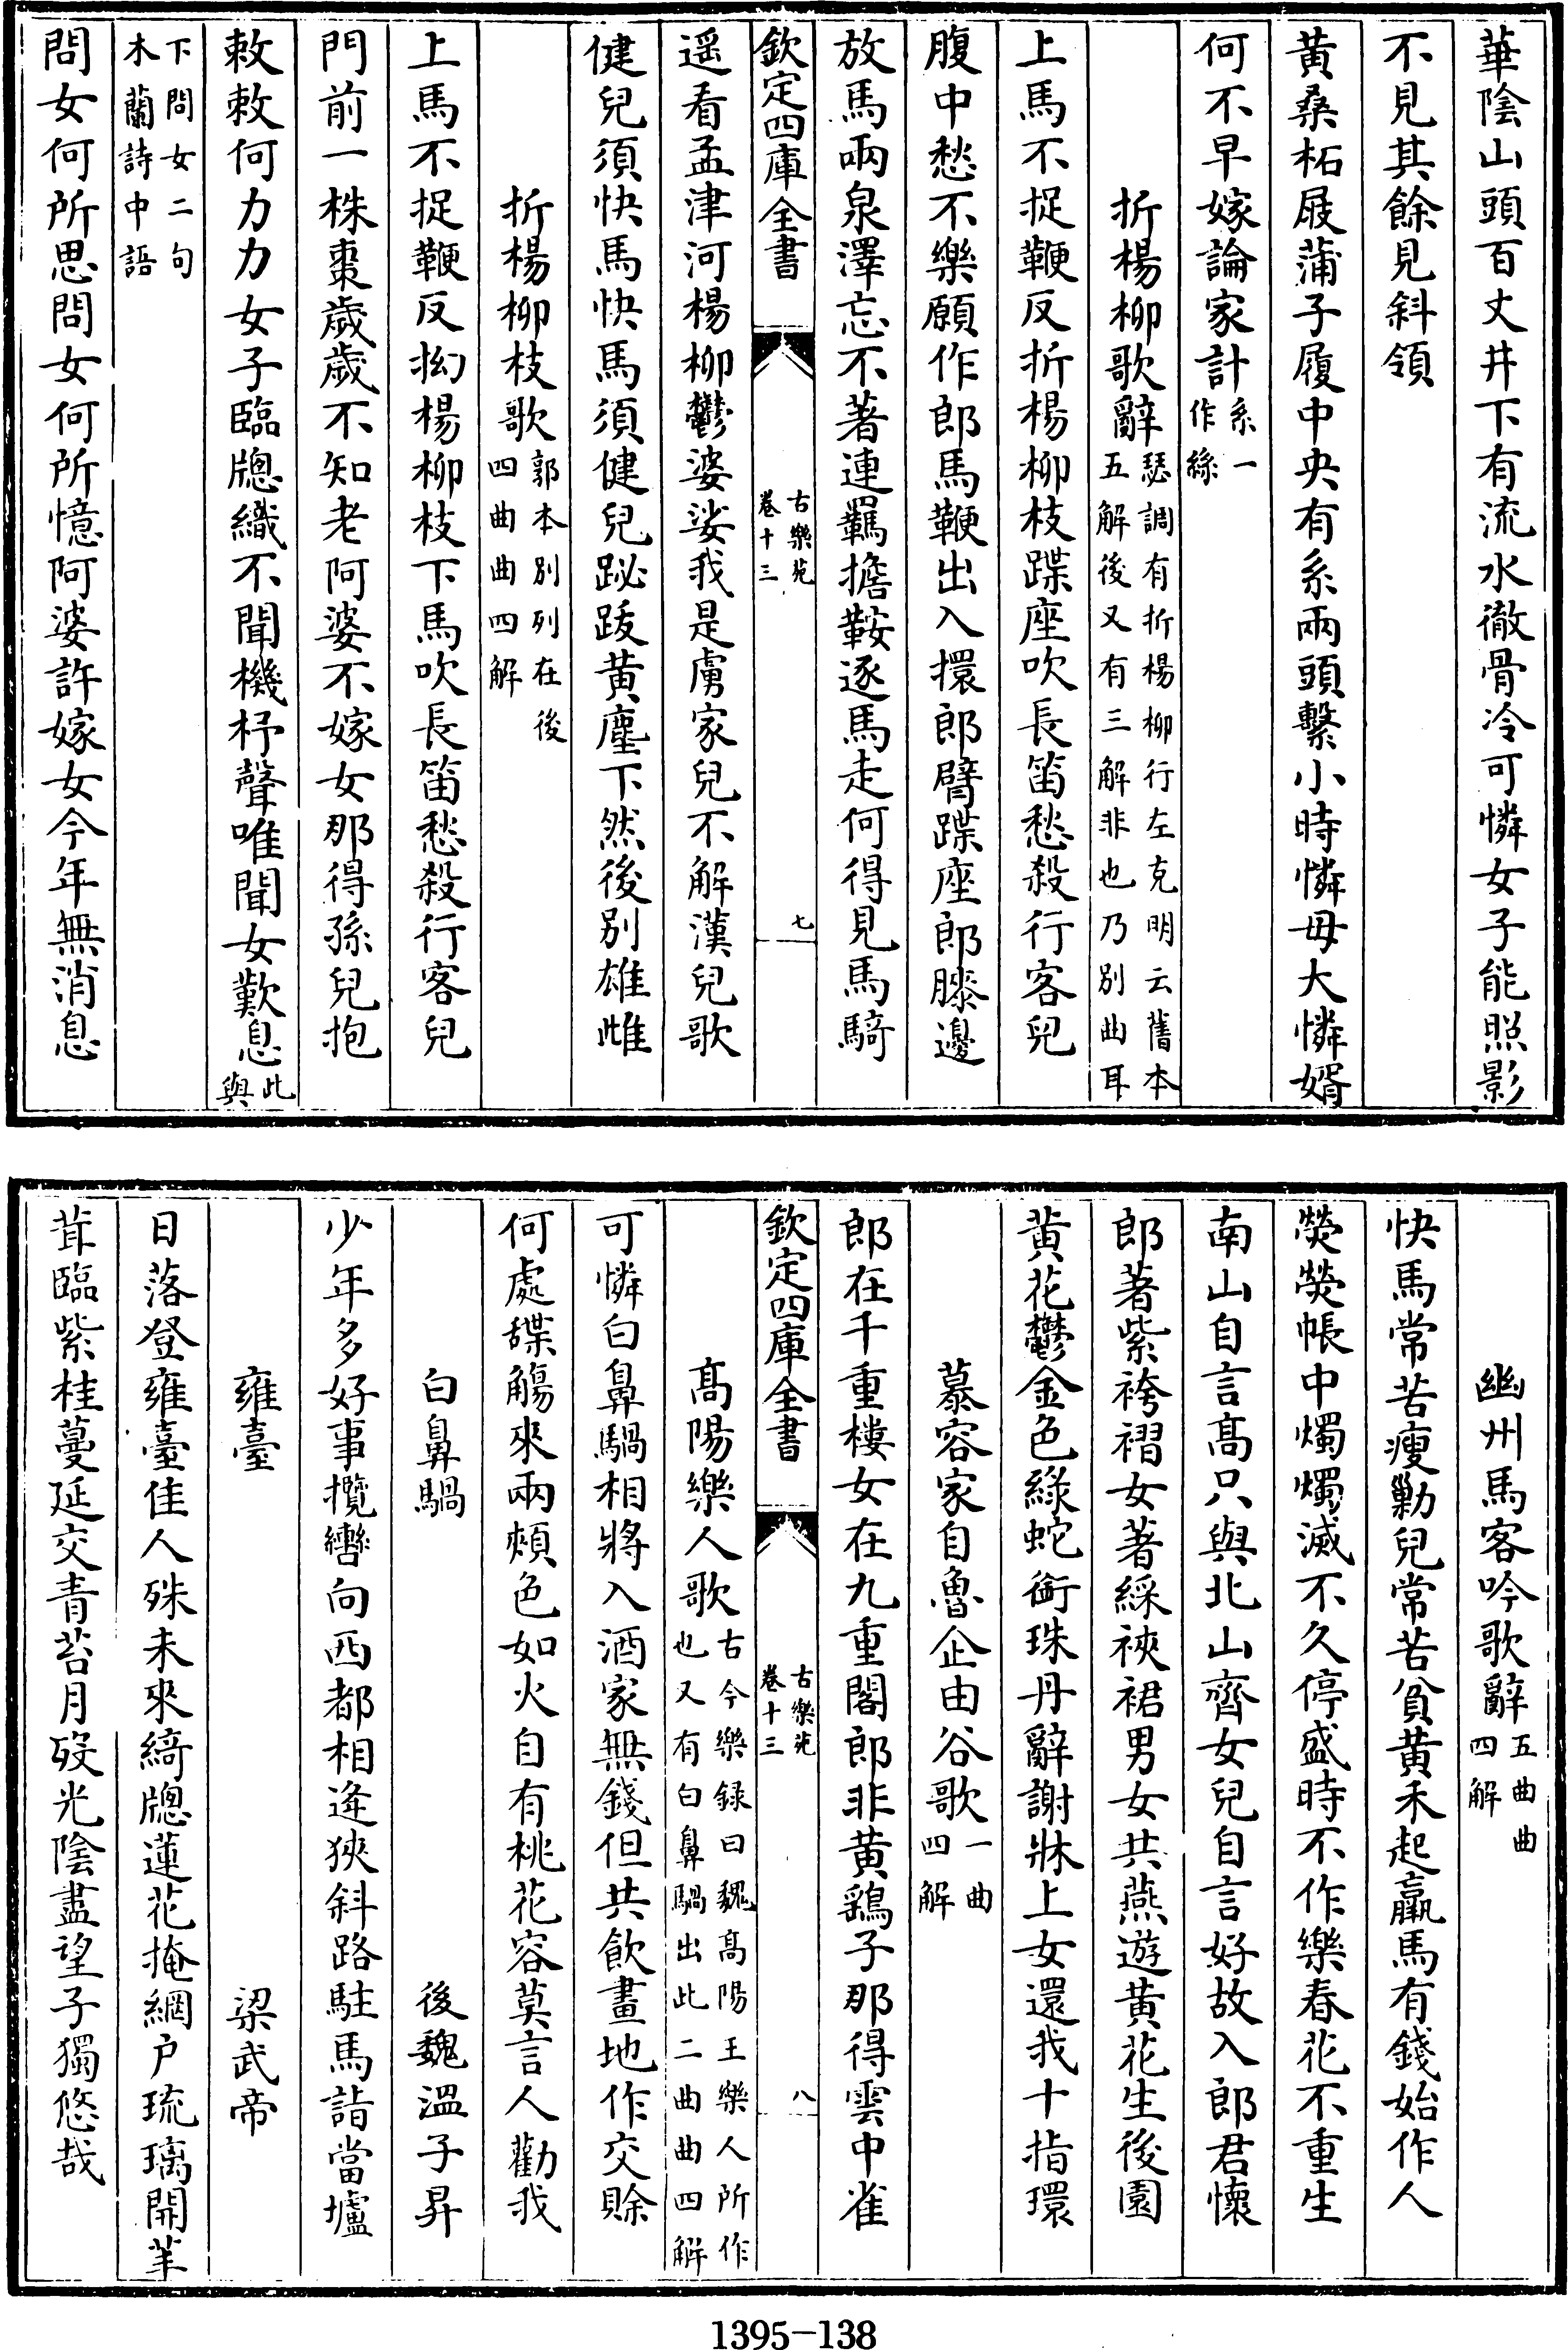 華陰山頭百丈井下有流水徹骨冷可憐女子能照影
不見其餘見斜領
黄桑柘屐蒲子履中央有系兩頭繫小時憐母大憐婿
何不早嫁論家計系一作絲
折楊柳歌辭瑟調有折楊柳行左克明云舊本五解後又有三解非也乃別曲耳
上馬不捉鞭反折楊柳枝蹀座吹長笛愁殺行客兒
腹中愁不樂願作郎馬鞭出入擐郎臂蹀座郎膝邊
放馬兩泉澤忘不著連羈擔鞍逐馬走何得見馬騎
欽定四庫全書
古樂苑
卷十三
七
遥看孟津河楊柳鬱婆娑我是虜家兒不解漢兒歌
健兒須快馬快馬須健兒跸跋黄塵下然後別雄雌
折楊柳枝歌郭本別列在後四曲曲四解
上馬不捉鞭反拗楊柳枝下馬吹長笛愁殺行客兒
門前一株棗歲歲不知老阿婆不嫁女那得孫兒抱
敕敕何力力女子臨牎織不聞機杼聲唯聞女歎息此與
下問女二句木蘭詩中語
問女何所思問女何所憶阿婆許嫁女今年無消息
幽州馬客吟歌辭五曲曲四解
快馬常苦瘦勦兒常苦貧黄禾起羸馬有錢始作人
熒熒帳中燭燭滅不久停盛時不作樂春花不重生
南山自言高只與北山齊女兒自言好故入郎君懷
郎著紫袴褶女著綵裌裙男女共燕遊黄花生後園
黄花鬱金色綠蛇銜珠丹辭謝牀上女還我十指環
慕容家自魯企由谷歌一曲四解
郎在十重樓女在九重閣郎非黄鷂子那得雲中雀
欽定四庫全書
古樂苑
卷十三
八
高陽樂人歌古今樂録曰魏高陽王樂人所作也又有白鼻騧出此二曲曲四解
可憐白鼻騧相將入酒家無錢但共飲畫地作交賒
何處䑜觴來兩頰色如火自有桃花容莫言人勸我
白鼻騧　後魏温子昇
少年多好事攬轡向西都相逢狹斜路駐馬詣當壚
雍臺　梁武帝
日落登雍臺佳人殊未來綺牎蓮花掩網户琉璃開䒠
茸臨紫桂蔓延交青苔月殁光陰盡望子獨悠哉
1395-138